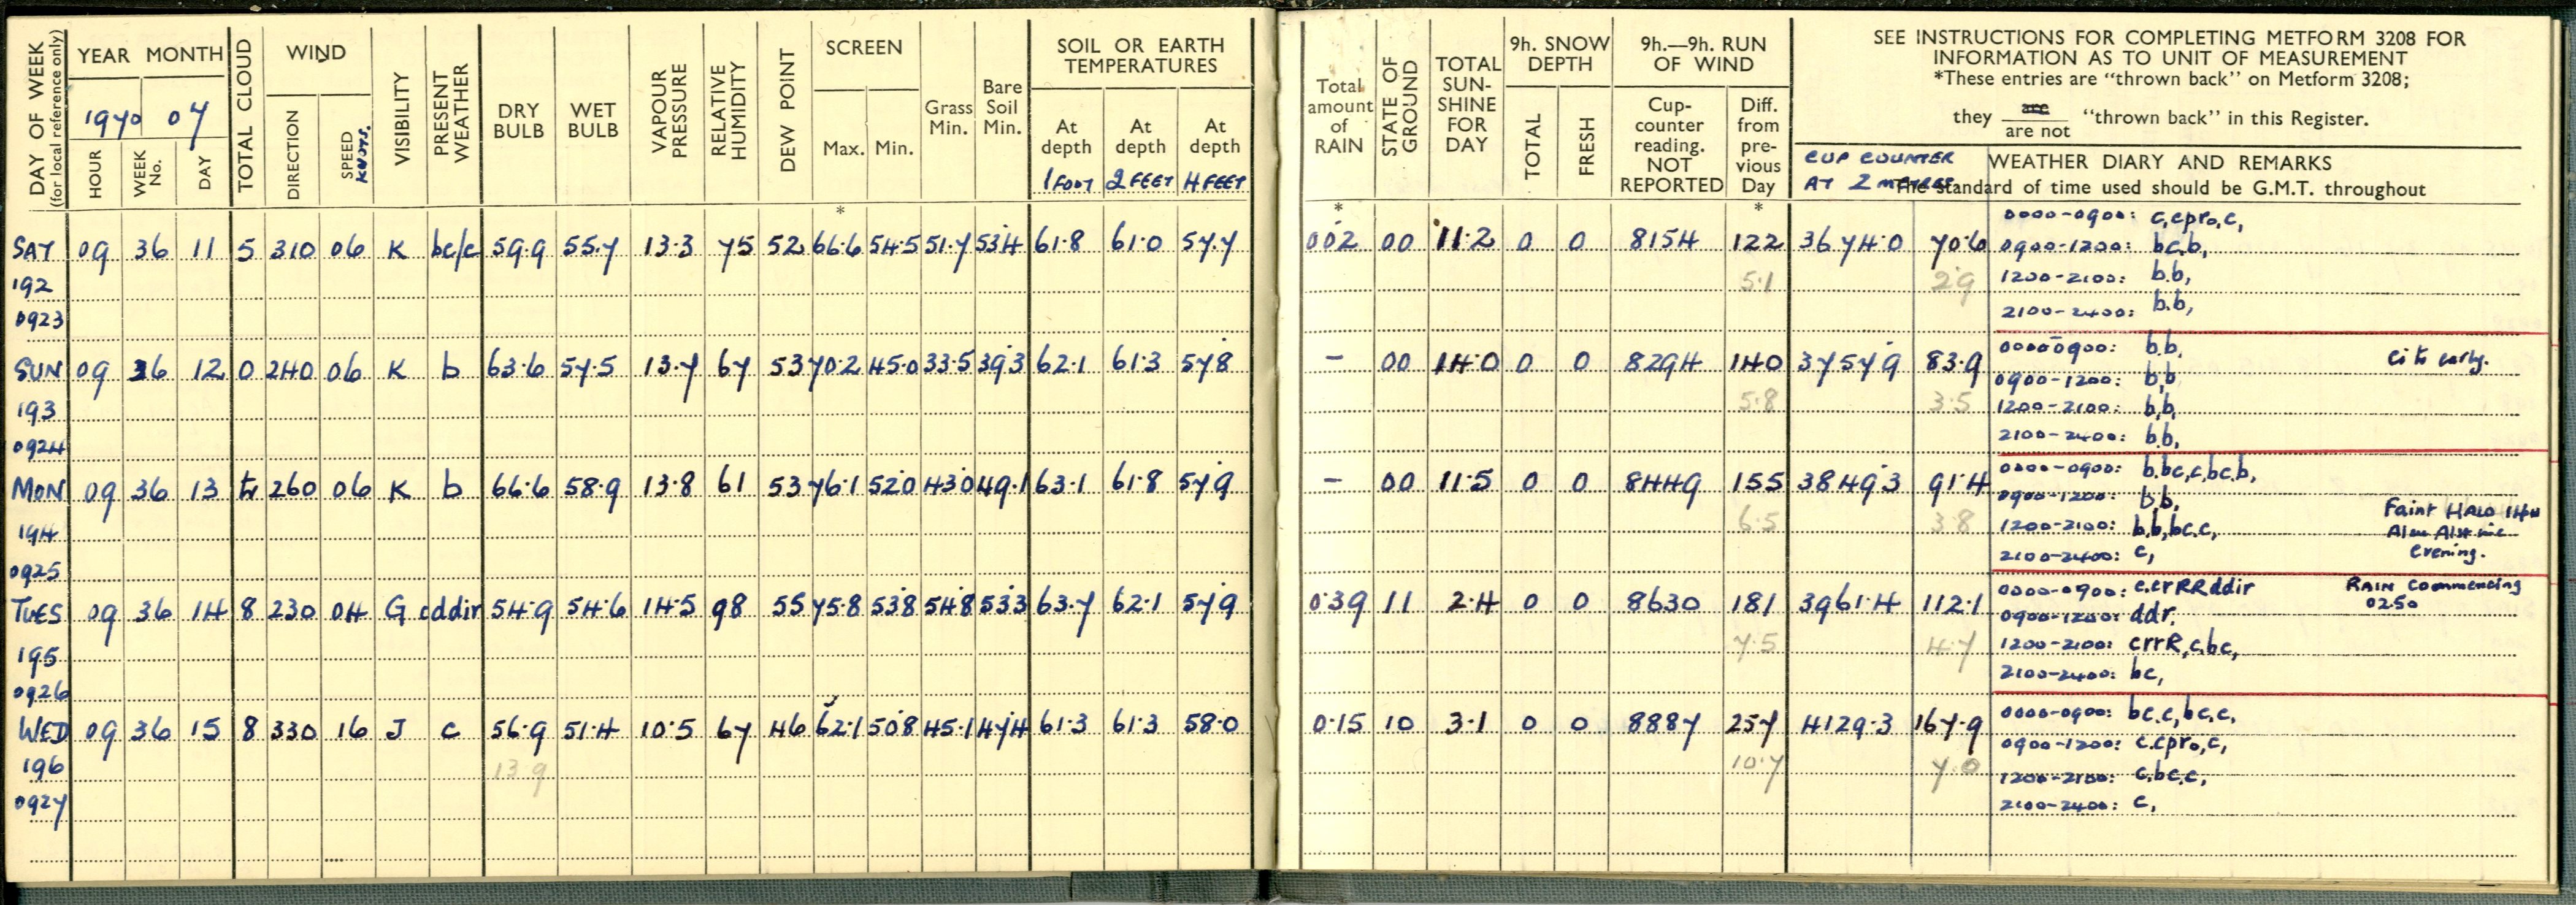 DAY OF WEEK
(for local reference only)
YEAR MONTH
1970 07
HOUR
WEEK No.
DAY
TOTAL CLOUD
WIND
DIRECTION
SPEED KNOTS.
VISIBILITY
PRESENT WEATHER
DRY BULB
WET BULB
VAPOUR PRESSURE
RELATIVE HUMIDITY
DEW POINT
SCREEN
Max. Min.
Grass Min.
Bare Soil Min.
SOIL OR EARTH TEMPERATURES
At depth 1 FOOT
At depth 2 FEET
At depth 4 FEET
Total amount of RAIN
STATE OF GROUND
TOTAL SUN-SHINE FOR DAY
9h. SNOW DEPTH
TOTAL
FRESH
9h.—9h. RUN OF WIND
Cup-counter reading. NOT REPORTED
Diff. from pre-vious Day
SEE INSTRUCTIONS FOR COMPLETING METFORM 3208 FOR
INFORMATION AS TO UNIT OF MEASUREMENT
*These entries are "thrown back" on Metform 3208;
they are / are not "thrown back" in this Register.
CUP COUNTER
AT 2 METRES
WEATHER DIARY AND REMARKS
The standard of time used should be G.M.T. throughout
* * *
SAT 09 36 11 5 310 06 K bc/c 59.9 55.7 13.3 75 52 66.6 54.5 51.7 53.4 61.8 61.0 57.7 0.02 00 11.2 0 0 8154 122 3674.0 70.6
192 5.1 2.9
0923
0000-0900: c,cpro,c,
0900-1200: bc,b,
1200-2100: b.b,
2100-2400: b.b,
SUN 09 36 12 0 240 06 K b 63.6 57.5 13.7 67 53 70.2 45.0 33.5 39.3 62.1 61.3 57.8 — 00 14.0 0 0 8294 140 3757.9 83.9
193 5.8 3.5
0924
0000-0900: b.b,
0900-1200: b,b
1200-2100: b,b,
2100-2400: b.b,
early.
MON 09 36 13 tr 260 06 K b 66.6 58.9 13.8 61 53 76.1 52.0 43.0 49.1 63.1 61.8 57.9 — 00 11.5 0 0 8449 155 3849.3 91.4
194 6.5 3.8
0925
0000-0900: b,bc,c,bc,b,
0900-1200: b,b,
1200-2100: b,b,bc,c,
2100-2400: c,
Faint HALO
evening.
TUES 09 36 14 8 230 04 G cddir 54.9 54.6 14.5 98 55 75.8 53.8 54.8 53.3 63.7 62.1 57.9 0.39 11 2.4 0 0 8630 181 3961.4 112.1
195 7.5 4.7
0926
0000-0900: c,crRRddir
0900-1200: ddr,
1200-2100: crrR,c,bc,
2100-2400: bc,
RAIN commencing
0250
WED 09 36 15 8 330 16 J c 56.9 51.4 10.5 67 46 62.1 50.8 45.1 47.4 61.3 61.3 58.0 0.15 10 3.1 0 0 8887 257 4129.3 167.9
196 13.9 10.7 7.0
0927
0000-0900: bc,c,bc,c,
0900-1200: c,cpro,c,
1200-2100: c,bc,c,
2100-2400: c,